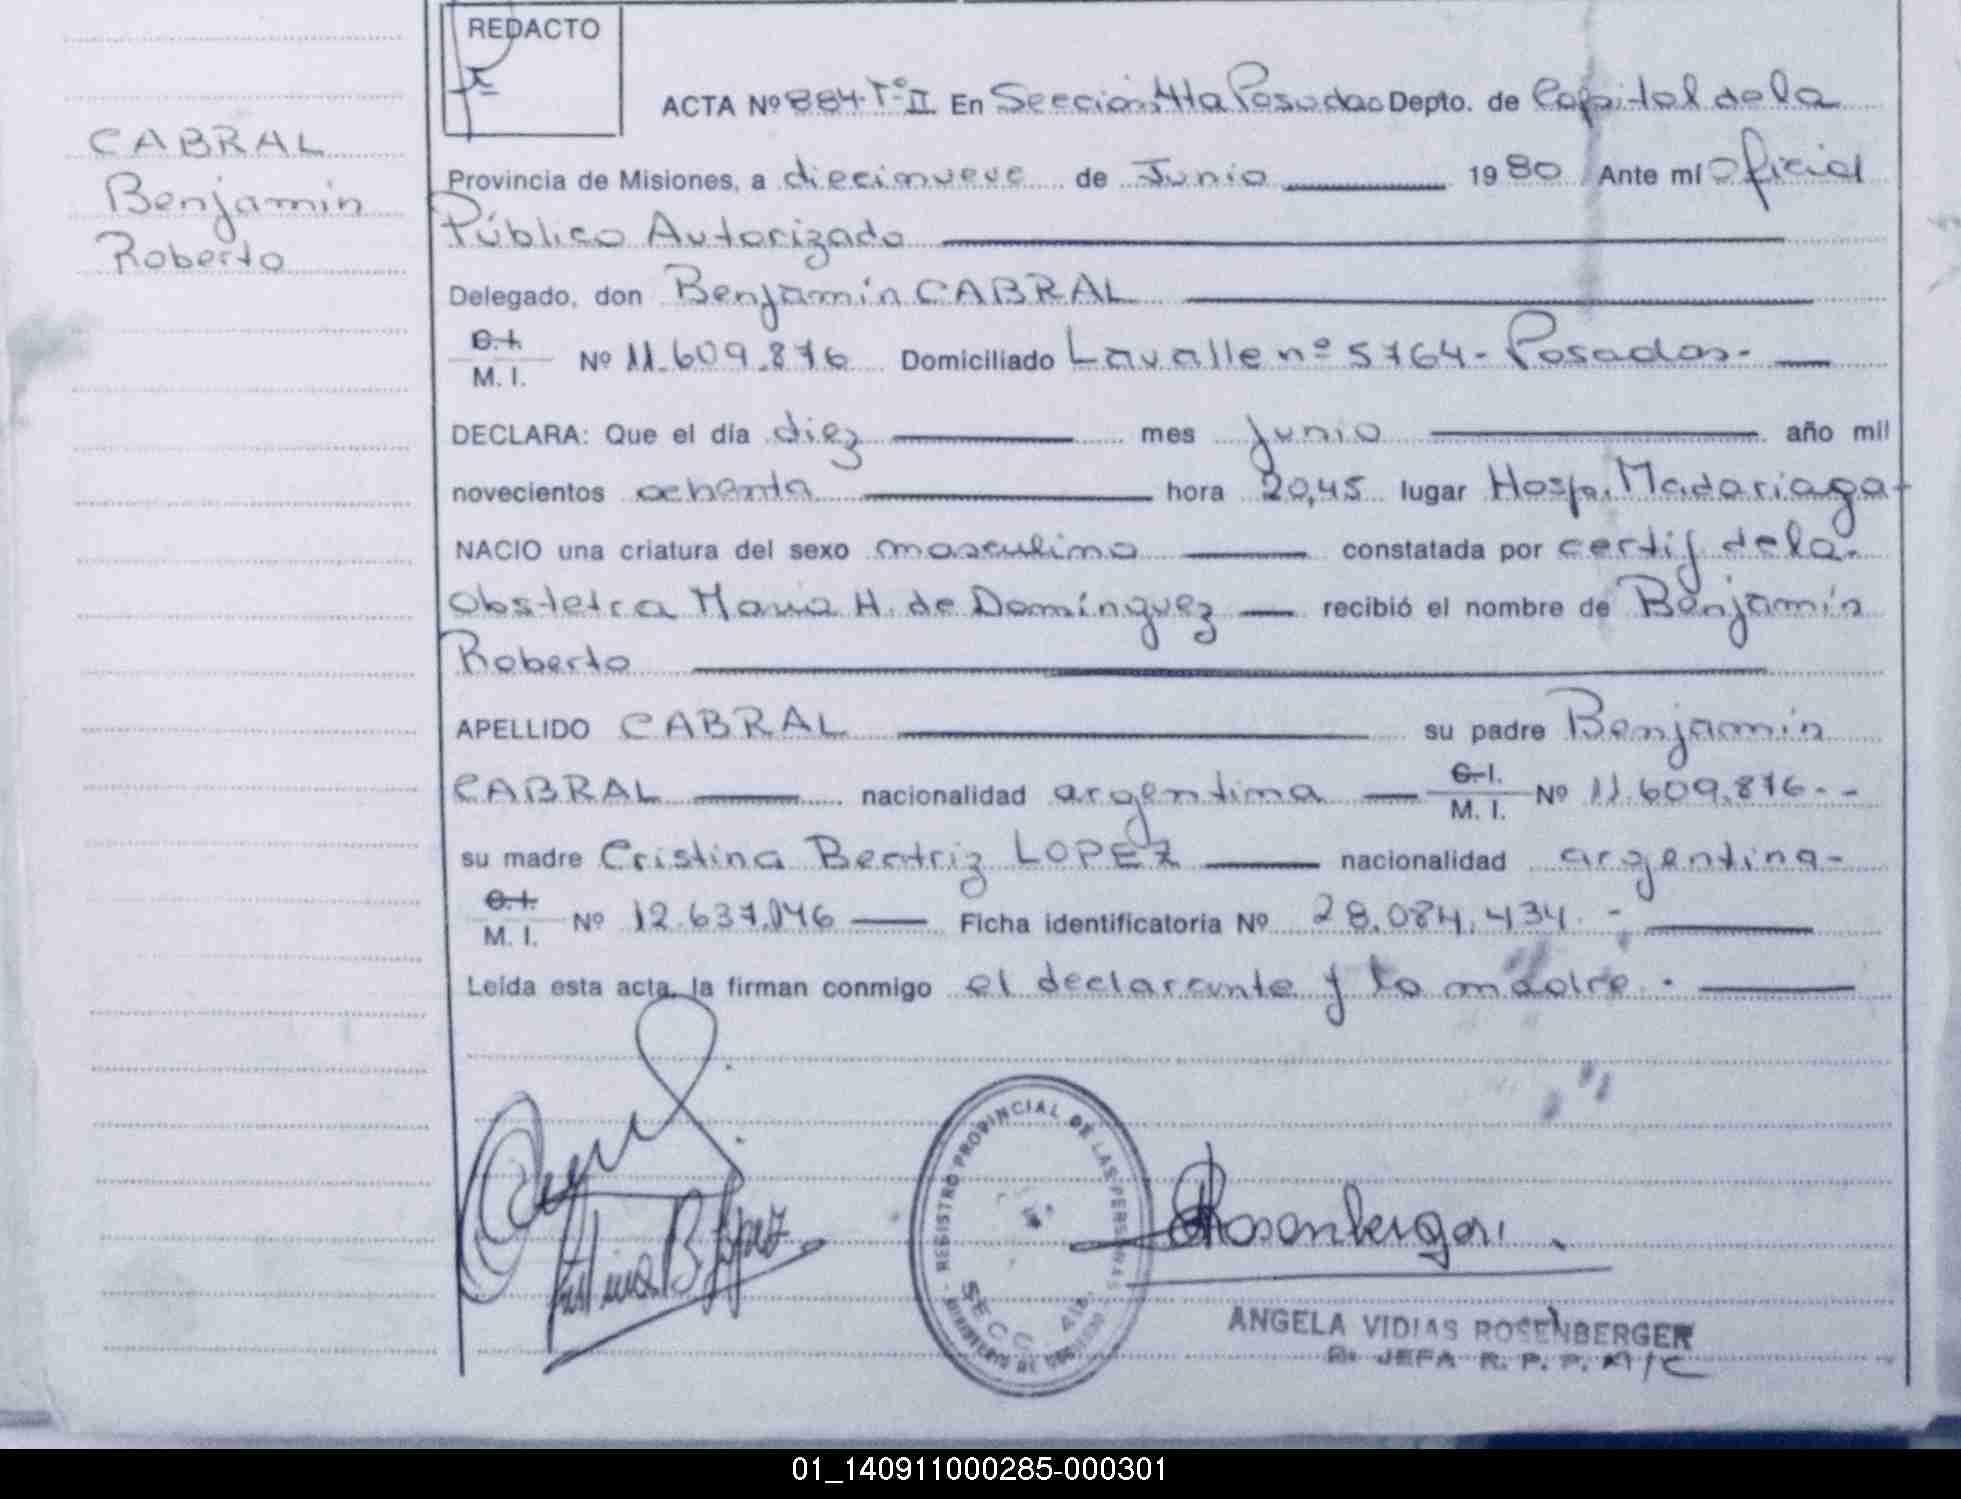 REDACTO
CABRAL
Benjamín
Roberto
ACTA Nº 884-Tº II En Sección 4ta Posadas Depto. de Capital de la
Provincia de Misiones, a diecinueve de Junio 1980 Ante mí Oficial
Público Autorizado
Delegado, don Benjamín CABRAL
C.I.
M. I. Nº 11.609.876 Domiciliado Lavalle nº 5764- Posadas-
DECLARA: Que el día diez mes junio año mil
novecientos ochenta hora 20,45 lugar Hosp. Madariaga-
NACIO una criatura del sexo masculino constatada por certif de la
obstetra Maria H. de Domínguez recibió el nombre de Benjamín
Roberto
APELLIDO CABRAL su padre Benjamín
CABRAL nacionalidad argentina C.I. M. I. Nº 11.609.876--
su madre Cristina Beatriz LOPEZ nacionalidad argentina-
C.I.
M. I. Nº 12.637.046 Ficha identificatoria Nº 28.084.434.-
Leída esta acta, la firman conmigo el declarante y la madre.
Cristina B López
REGISTRO PROVINCIAL DE LAS PERSONAS
SECC. 4ta.
Rosenberger
ANGELA VIDIAS ROSENBERGER
JEFA R. P. P. A/C
01_140911000285-000301